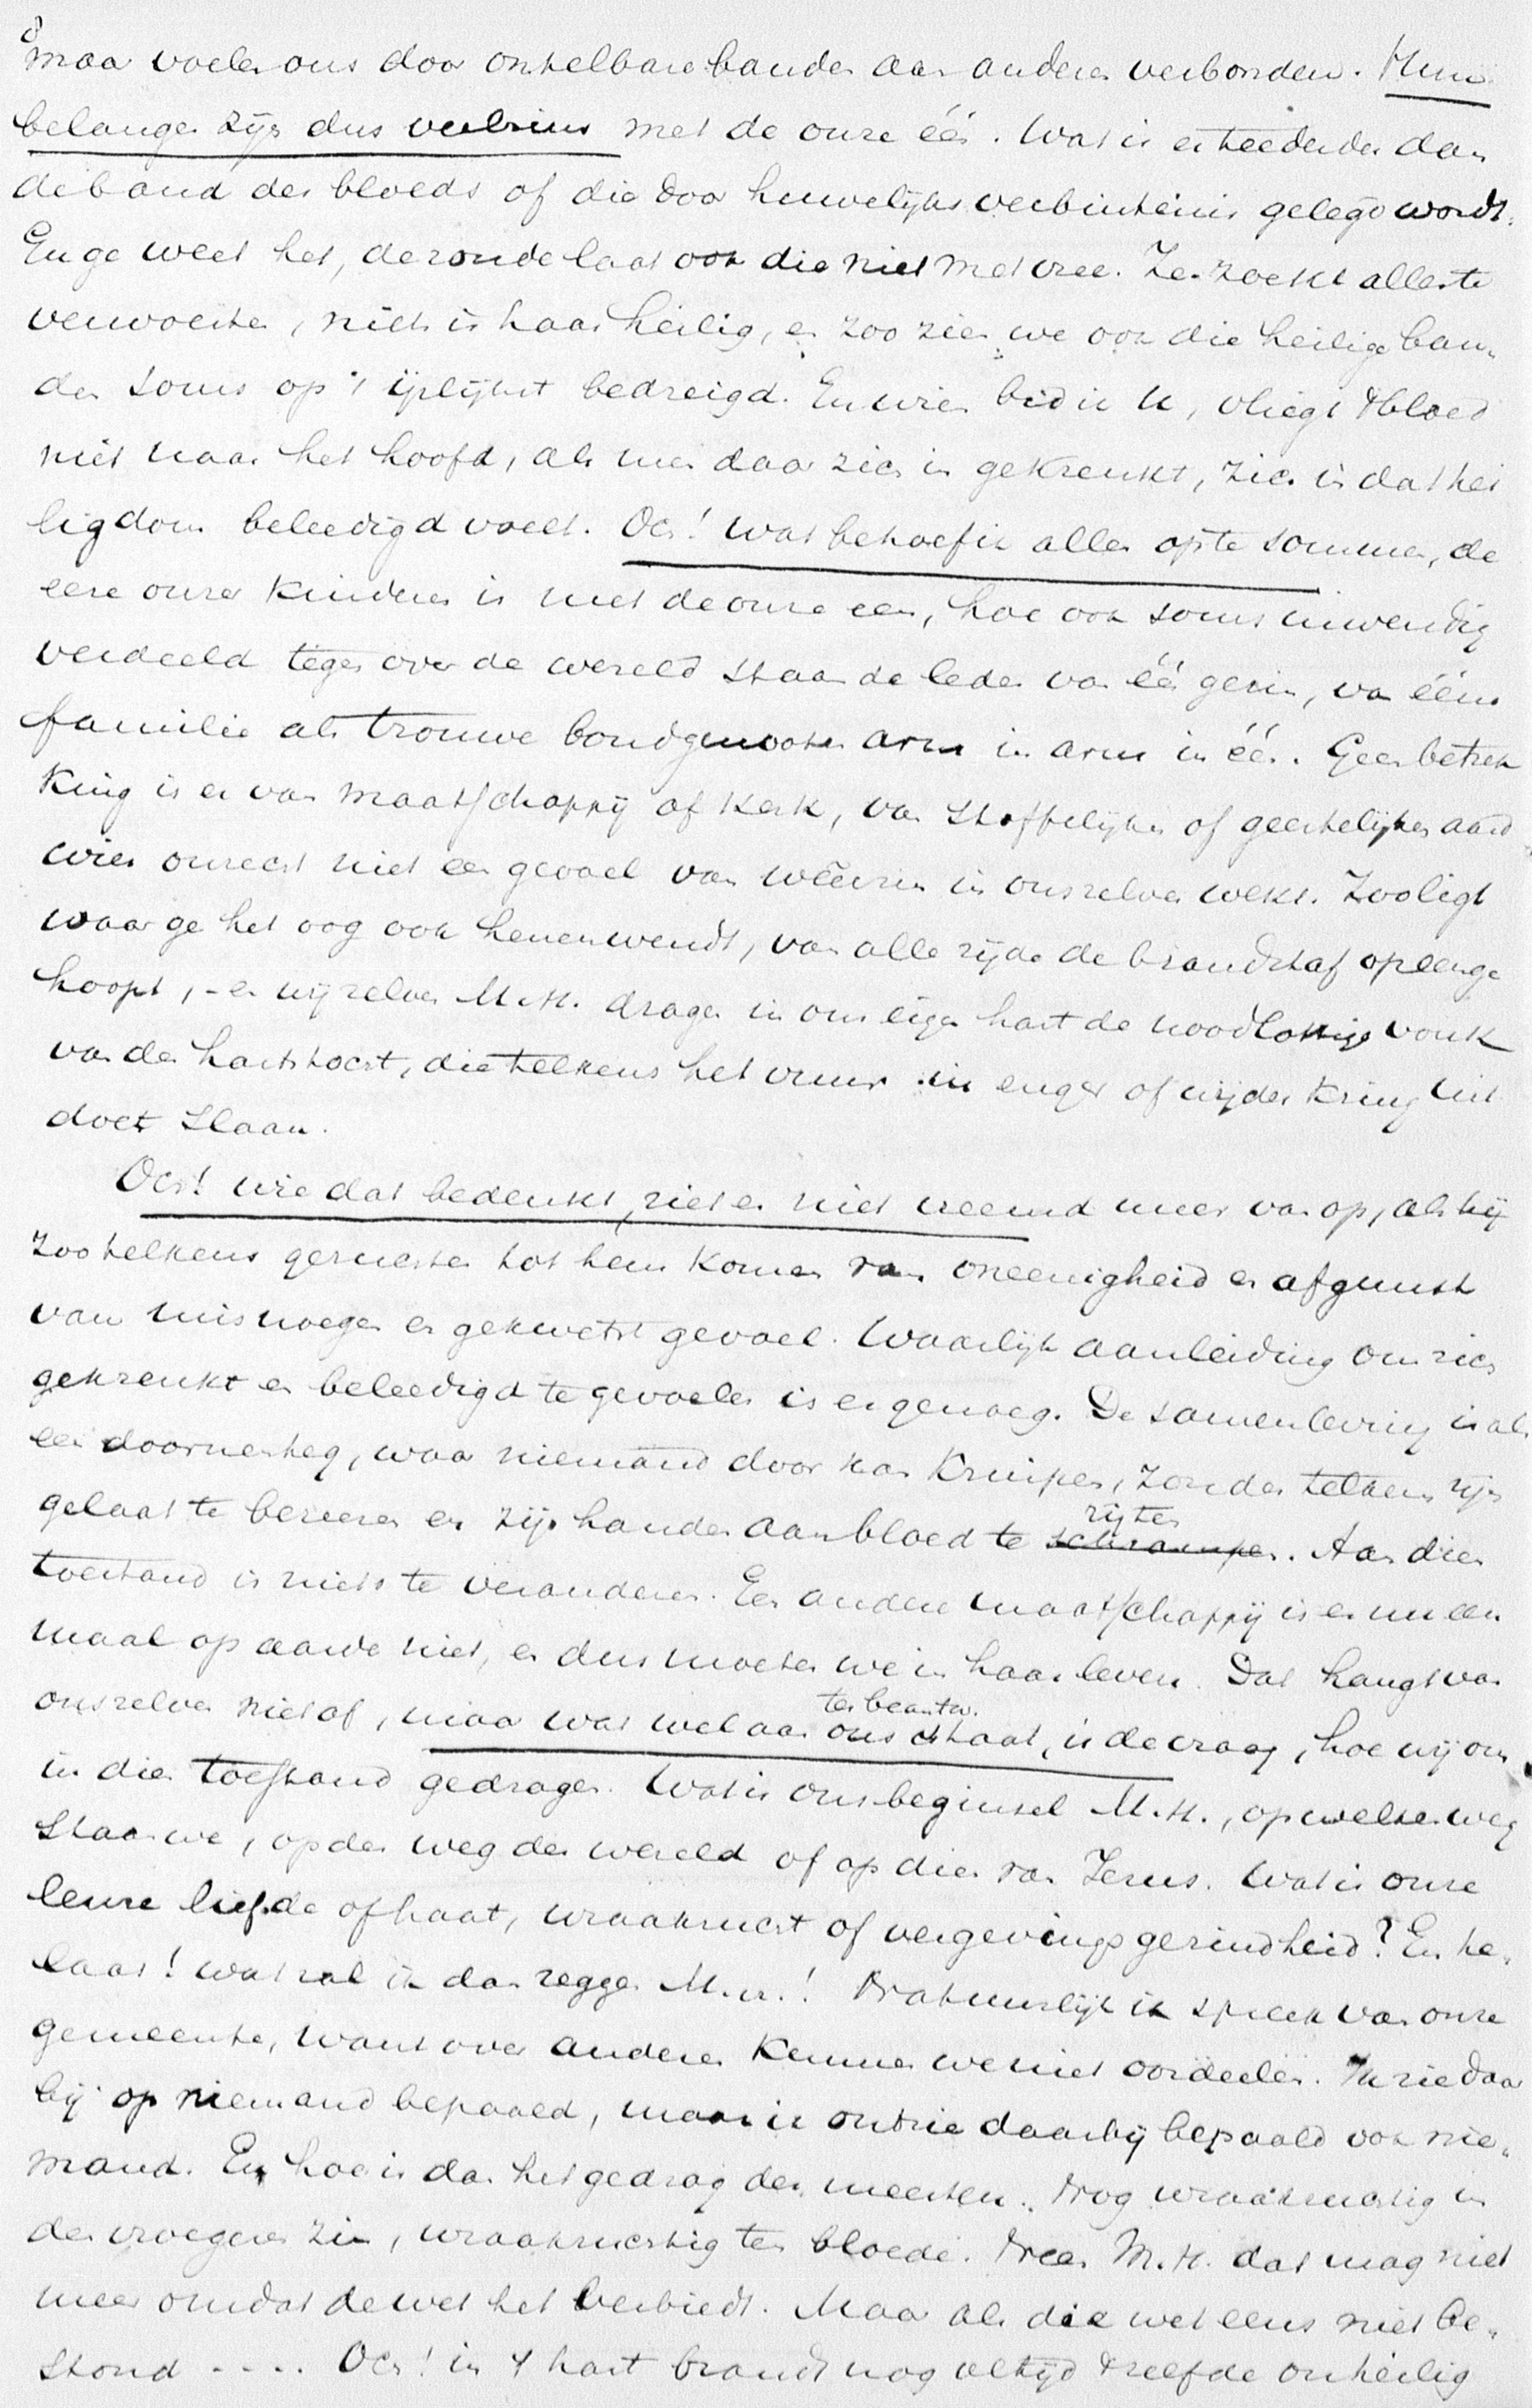 8
maar voelen ons door ontelbare banden aan anderen verbonden. Hun
belangen zijn dus veelszins met de onze één. Wat is er teederder dan
de band des bloeds of die door huwelijksverbintenis gelegd wordt.
En ge weet het, de zonde laat ook die niet met vree. Ze zoekt alles te
verwoesten, niets is haar heilig, en zoo zien we ook die heilige ban-
den soms op 't ijslijkst bedreigd. En wien bid ik u, vliegt 't bloed
niet naar het hoofd, als men daar zich in gekrenkt, zich in dat hei
ligdom beleedigd voelt. Och! wat behoef ik alles op te sommen, de
eere onzer kinderen is met de onze een, hoe ook soms inwendig
verdeeld tegenover de wereld staan de leden van één gezin, van ééne
familie als trouwe bondgenooten arm in arm in één. Geen betrek
king is er van maatschappij of kerk, van stoffelijken of geestelijken aard
wier onrecht niet een gevoel van weerzin in onszelven wekt. Zoo ligt
waar ge het oog ook henenwendt, van alle zijde de brandstof opeenge
hoopt, - en wij zelven M.H. dragen in ons eigen hart de noodlottige vonk
van den hartstocht, die telkens het vuur in enger of wijder kring uit
doet slaan.
Och! wie dat bedenkt, ziet er niet vreemd meer van op, als hij
zoo telkens geruchten tot hem komen van oneenigheid en afgunst
van misnoegen en gekwetst gevoel. Waarlijk aanleiding om zich
gekrenkt en beleedigd te gevoelen is er genoeg. De samenleving is als
een doornenheg, waar niemand door kan kruipen, zonder telkens zijn
gelaat te bezeeren en zijn handen aan bloed te schrampen. Aan dien
rijten
toestand is niets te veranderen. Een andere maatschappij is er nu een
maal op aarde niet, en dus moeten we in haar leven. Dat hangt van
onszelven niet af, maar wat wel aan ons staat, is de vraag, hoe wij ons
ter beantw.
in dien toestand gedragen. Wat is ons beginsel M.H., op welken weg
staan we, op den weg der wereld of op dien van Jezus. Wat is onze
leuze liefde of haat, wraakzucht of vergevingsgezindheid? En he-
laas! wat zal ik dan zeggen M.H.! Natuurlijk ik spreek van onze
gemeente, want over anderen kunnen we niet oordeelen. Ik zie daar
bij op niemand bepaald, maar ik ontzie daarbij bepaald ook nie-
mand. En hoe is dan het gedrag der meesten. Nog wraakzuchtig in
den vroegeren zin, wraakzuchtig ten bloede. Neen M.H. dat mag niet
meer omdat de wet het verbiedt. Maar als die wet eens niet be-
stond .... Och! in 't hart brandt nog altijd 't zelfde onheilig